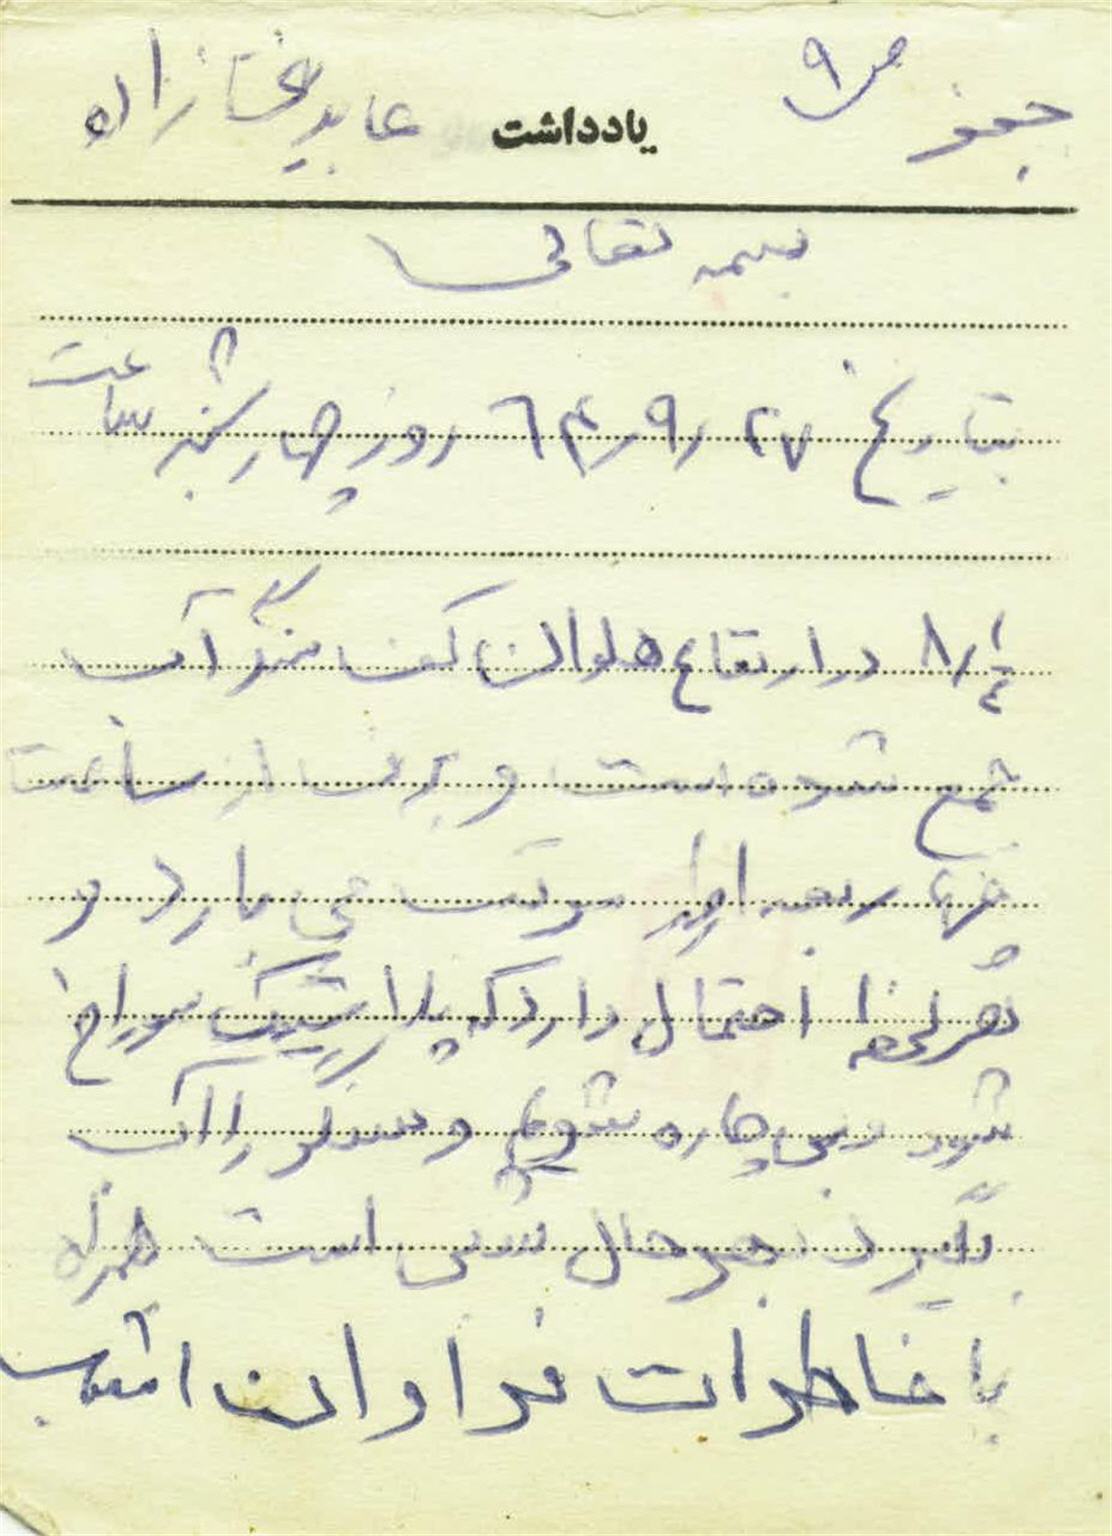 جعفر ص ۹ یادداشت عابدینی زاده
بسمه تعالی
بتاریخ ۲۷ ر۹ر ٦۴ روز چهارشنبه ساعت
۸٫۱/٤ در ارتفاع هلوان کف سنگر آب
جمع شده است و برف از ساعت
ربعه سرتب می بارد و
هر لحظه احتمال دارد که پلاستیک سوراخ
شود و بی چاره شویم و سنگر را آب
بگیرد بهر حال شبی است همراه
با خاطرات فراوان امشب